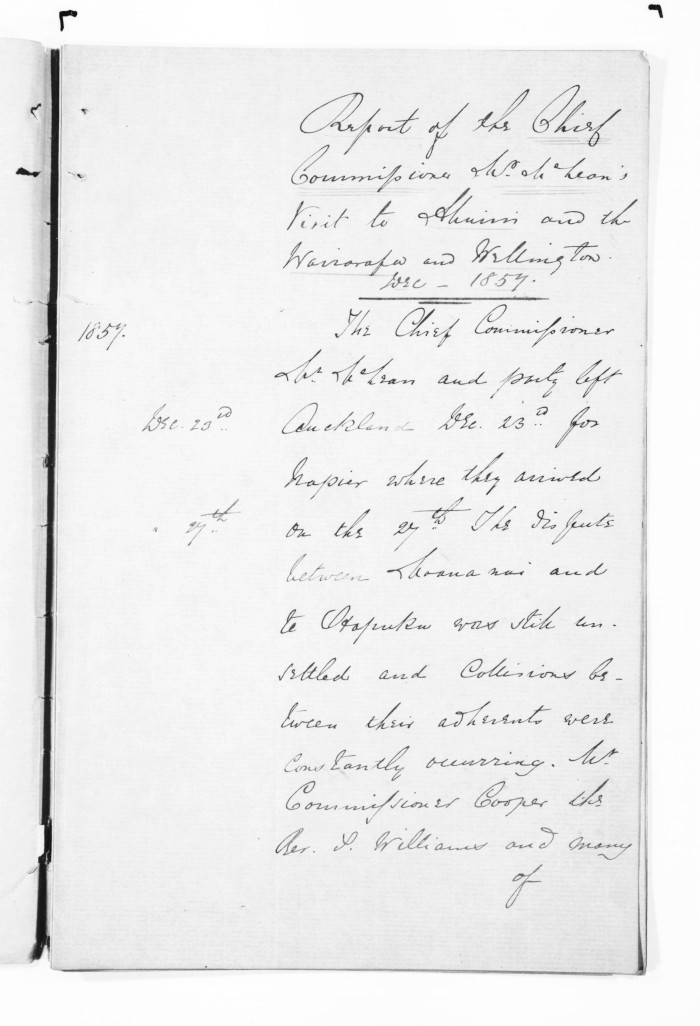 Report of the Chief
Commissioner Mr. McLean's
Visit to Ahuriri and the
Wairarapa and Wellington.
Dec - 1857.
1857.
The Chief Commissioner
Mr. McLean and party left
Dec. 23rd
Auckland Dec. 23rd for
Napier where they arrived
" 27th
on the 27th The dispute
between Moananui and
te Hapuku was still un-
settled and Collisions be-
tween their adherents were
constantly occurring. Mr.
Commissioner Cooper the
Rev. S. Williams and many
of